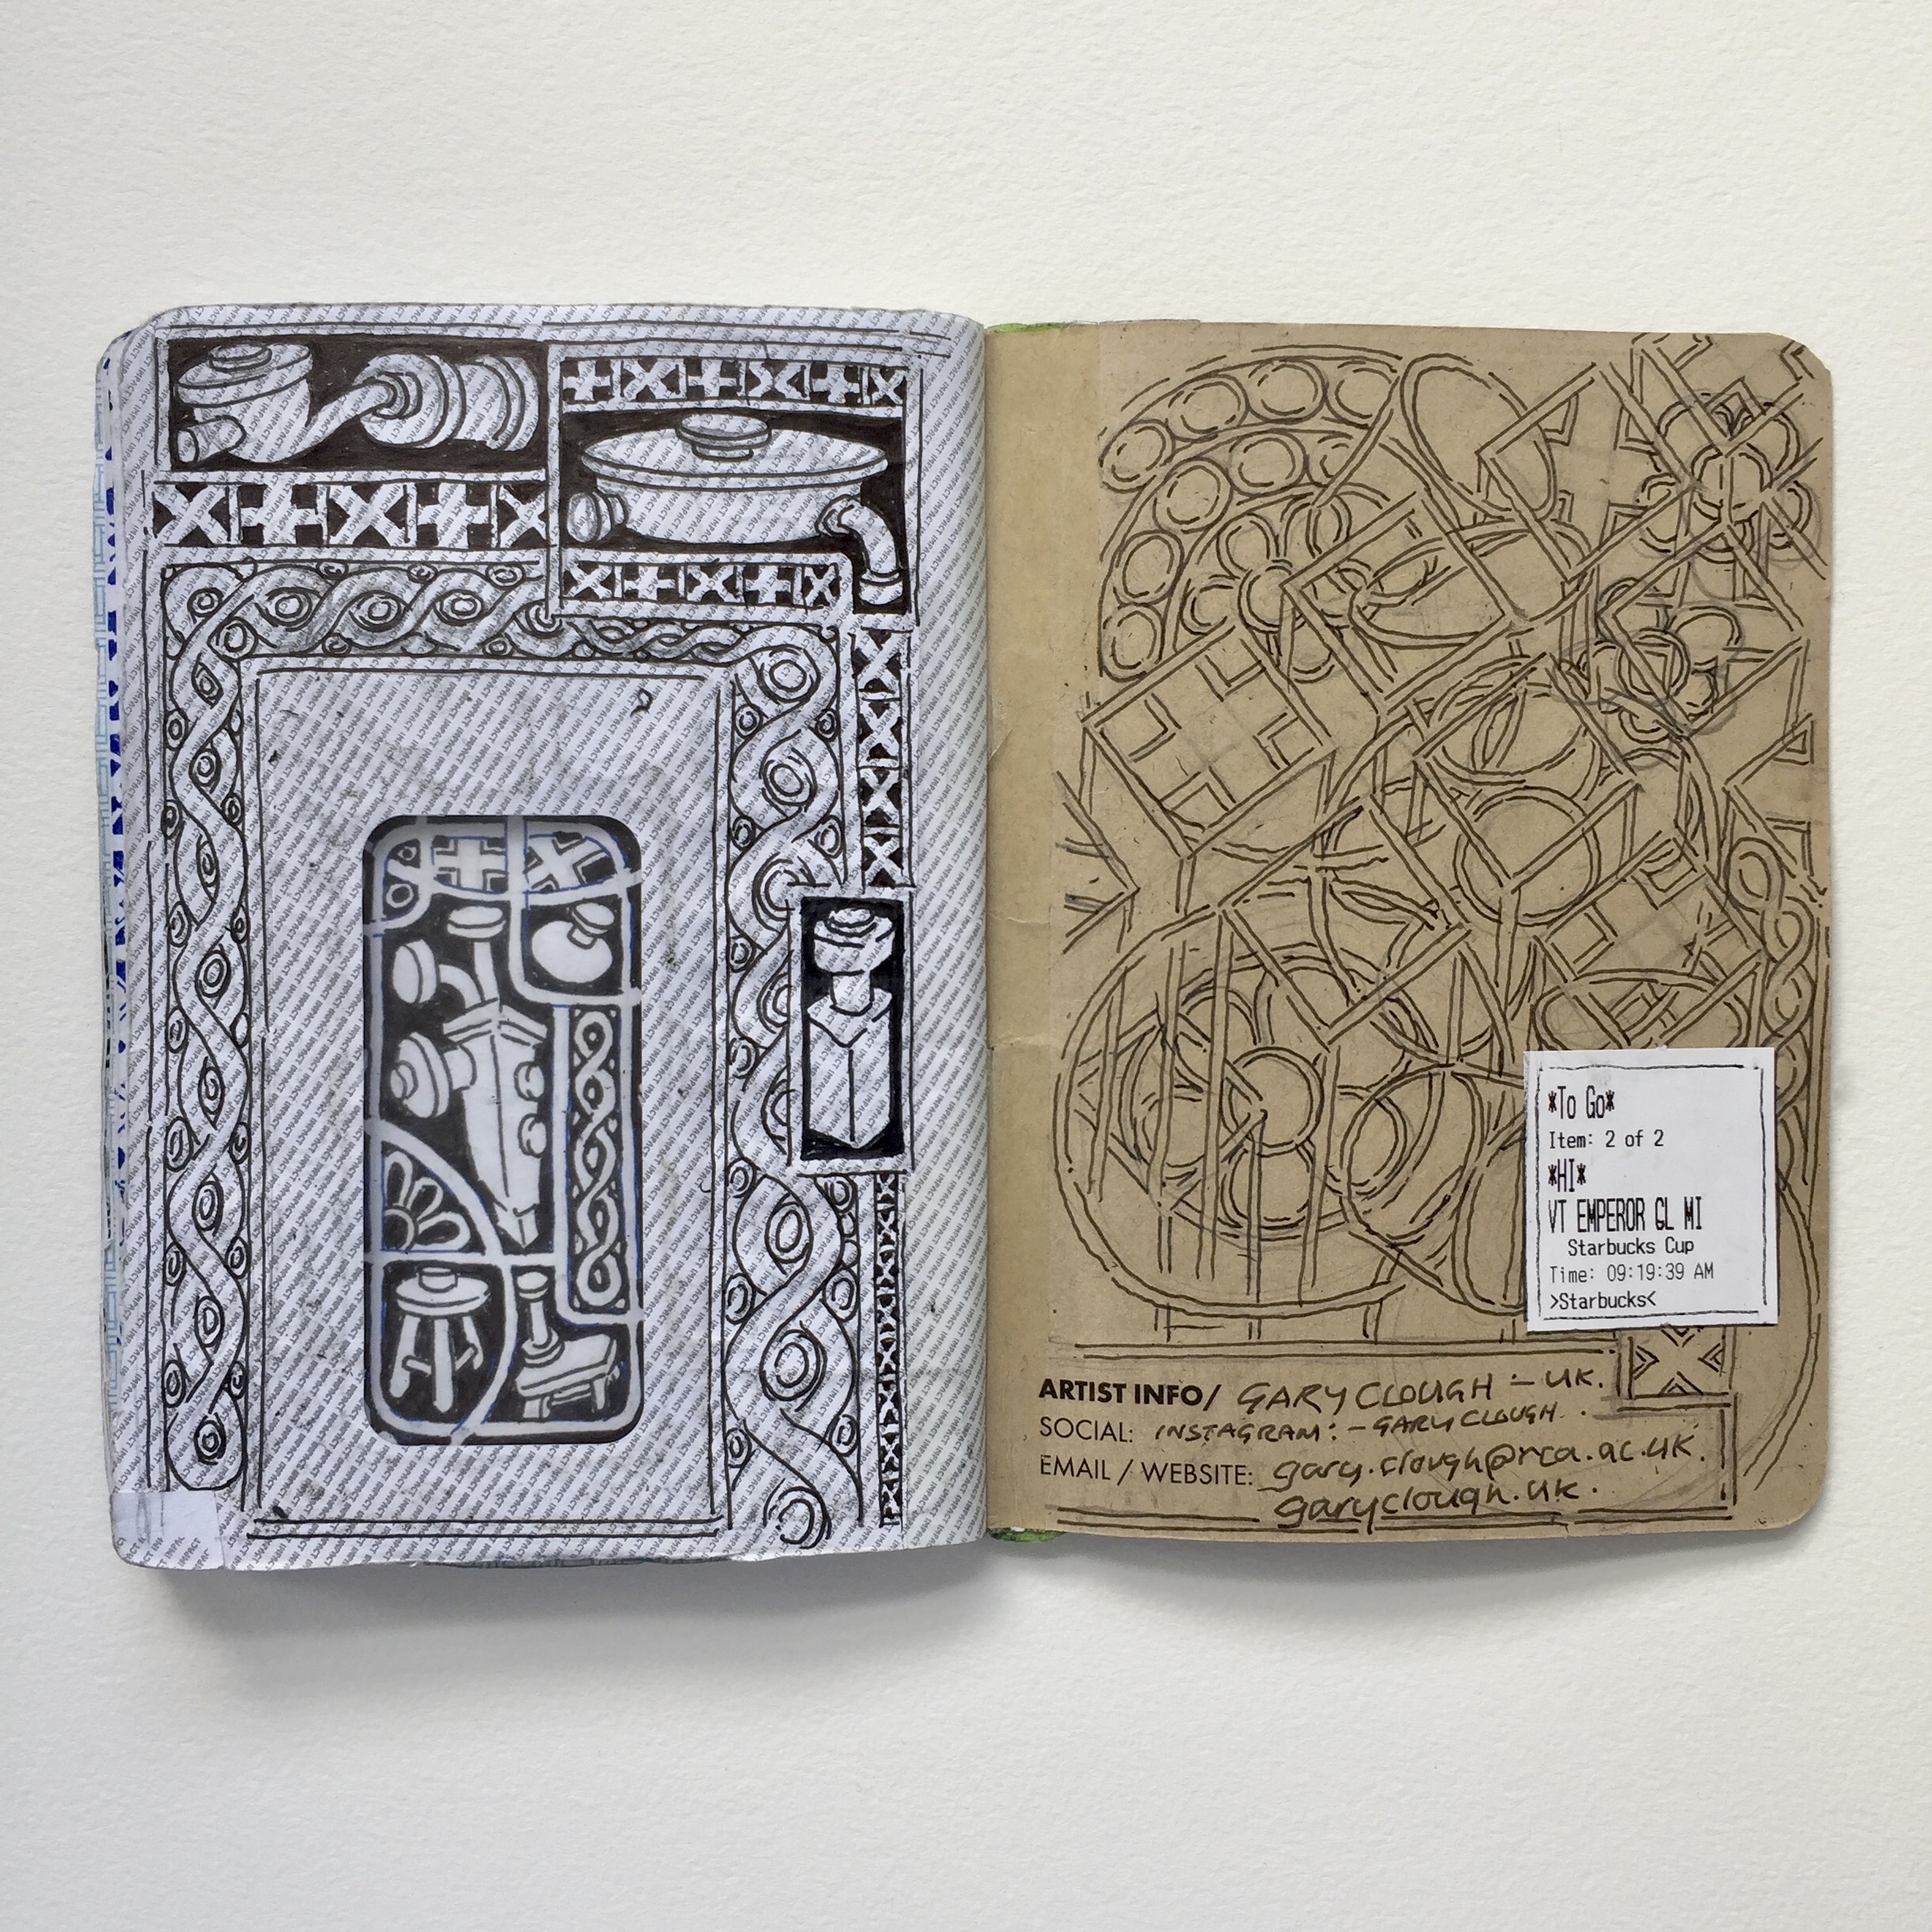 *To Go*
Item: 2 of 2
*HI*
VT EMPEROR GL MI
Starbucks Cup
Time: 09:19:39 AM
>Starbucks<
ARTIST INFO/ GARY CLOUGH - UK.
SOCIAL: INSTAGRAM: - GARY CLOUGH.
EMAIL / WEBSITE: gary.clough@rca.ac.uk.
garyclough.uk.